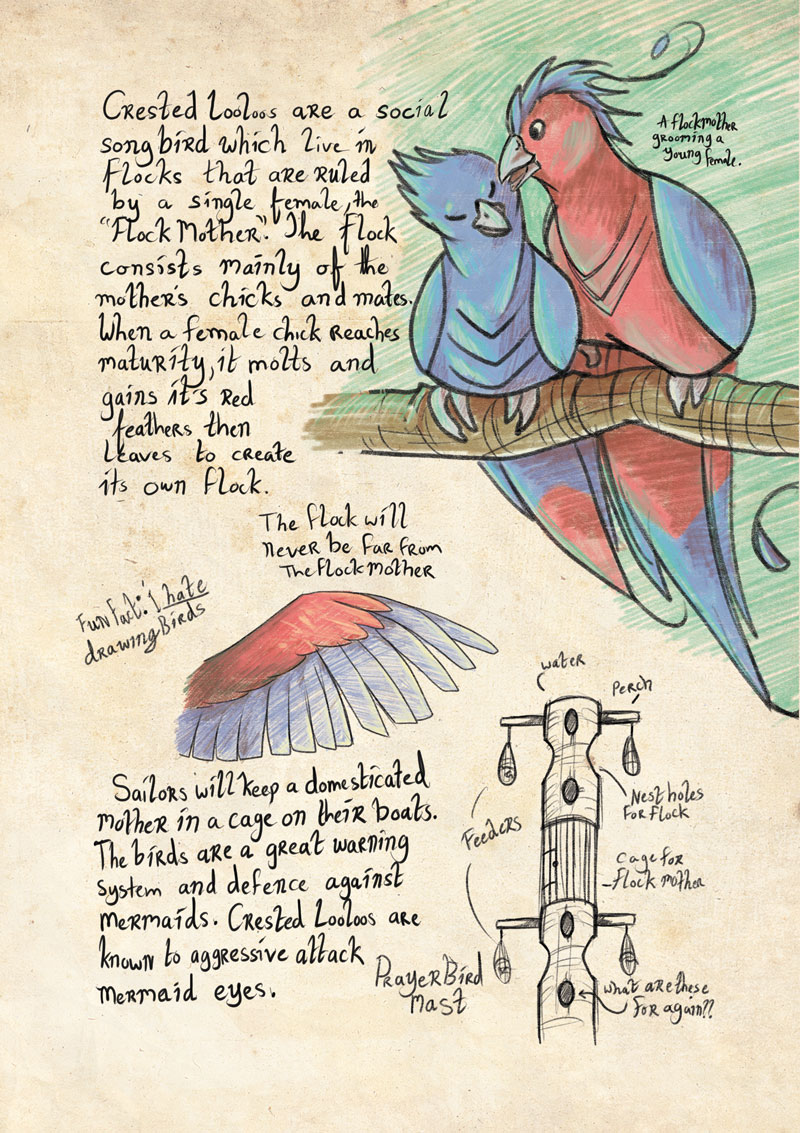 Crested Looloos are a social
song bird which live in
flocks that are ruled
by a single female, the
"Flock Mother". The flock
consists mainly of the
mother's chicks and mates.
When a female chick reaches
maturity, it molts and
gains it's red
feathers then
leaves to create
its own flock.
A flockmother
grooming a
young female.
The flock will
never be far from
The flock mother
Fun Fact: I hate
drawing Birds
Sailors will keep a domesticated
mother in a cage on their boats.
The birds are a great warning
system and defence against
mermaids. Crested Looloos are
known to aggressive attack
mermaid eyes.
water
Perch
Nest holes
for flock
Feeders
cage for
flock mother
Prayer Bird
Mast
what are these
for again??